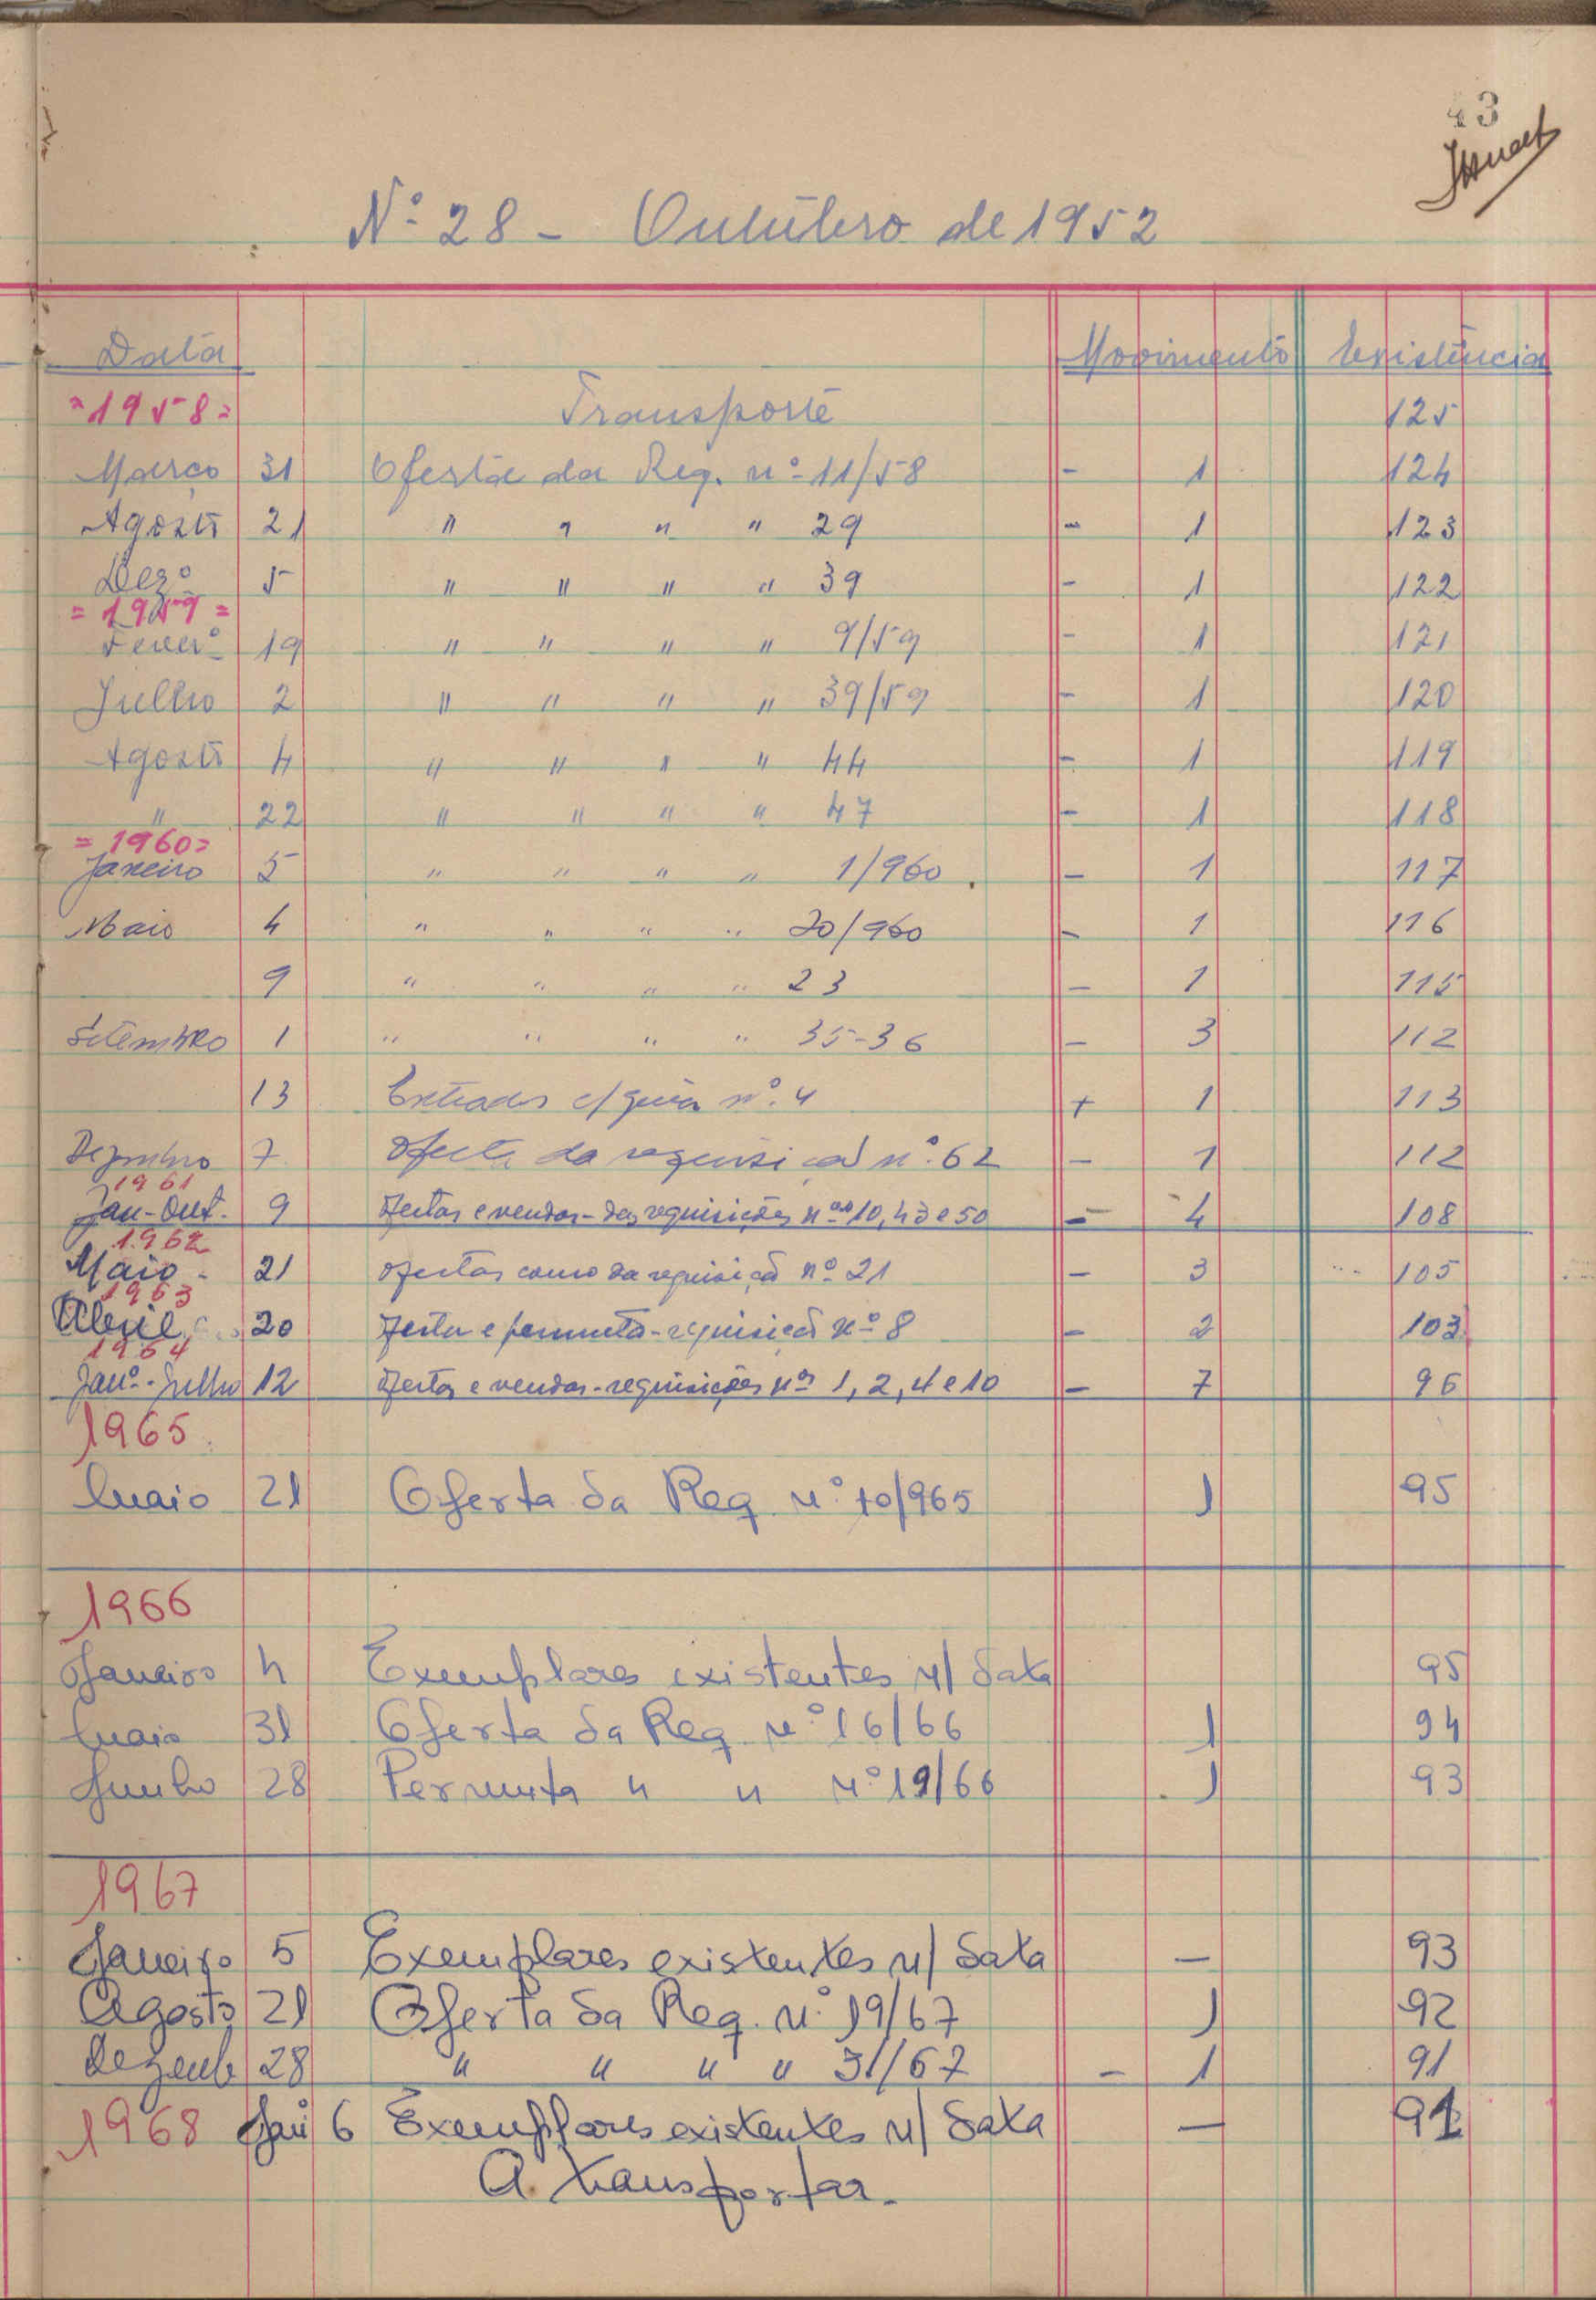 43
Nº 28 - Outubro de 1952
Data Movimento Existência
=1958= Transporte 125
Março 31 Oferta da Req. nº 11/58 - 1 124
Agosto 21 " " " " 29 - 1 123
Dezº 5 " " " " 39 - 1 122
=1959=
Feverº 19 " " " " 9/59 - 1 121
Julho 2 " " " " 39/59 - 1 120
Agosto 4 " " " " 44 - 1 119
" 22 " " " " 47 - 1 118
=1960=
Janeiro 5 " " " " 1/960 . - 1 117
Maio 4 " " " " 20/960 - 1 116
9 " " " " 23 - 1 115
Setembro 1 " " " " 35-36 - 3 112
13 Entrada c/guia nº. 4 + 1 113
Dezembro 7 Oferta da requisição nº. 62 - 1 112
1961
Jan-Out. 9 ofertas e vendas - das requisições nºs 10, 43 e 50 - 4 108
1962
Maio - 21 ofertas como da requisição nº 21 - 3 105
1963
Abril 20 oferta e permuta - requisição nº 8 - 2 103
1964
Janº - Julho 12 ofertas e vendas - requisições nºs 1, 2, 4 e 10 - 7 96
1965
Maio 21 Oferta da Req. nº 10/965 1 95
1966
Janeiro 4 Exemplares existentes n/ data 95
Maio 31 Oferta da Req. nº 16/66 1 94
Junho 28 Permuta " " nº 19/66 1 93
1967
Janeiro 5 Exemplares existentes n/ data — 93
Agosto 21 Oferta da Req. nº 19/67 1 92
Dezemb 28 " " " " 31/67 - 1 91
1968 Janº 6 Exemplares existentes n/ data — 91
A transportar.